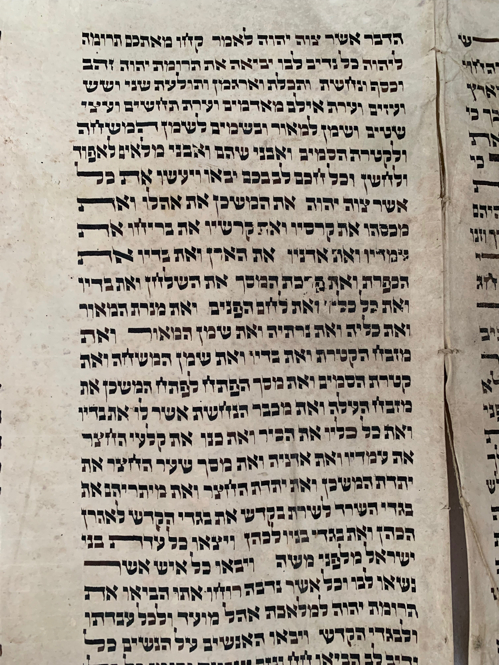 הדבר אשר צוה יהוה לאמר קחו מאתכם תרומה
ליהוה כל נדיב לבו יביאה את תרומת יהוה זהב
וכסף ונחשת ותכלת וארגמן ותולעת שני ושש
ועזים וערת אילם מאדמים וערת תחשים ועצי
שטים ושמן למאור ובשמים לשמן המשחה
ולקטרת הסמים ואבני שהם ואבני מלאים לאפוד
ולחשן וכל חכם לב בכם יבאו ויעשו את כל
אשר צוה יהוה את המשכן את אהלו ואת
מכסהו את קרסיו ואת קרשיו את בריחו את
עמדיו ואת אדניו את הארן ואת בדיו את
הכפרת ואת פרכת המסך את השלחן ואת בדיו
ואת כל כליו ואת לחם הפנים ואת מנרת המאור
ואת כליה ואת נרתיה ואת שמן המאור ואת
מזבח הקטרת ואת בדיו ואת שמן המשחה ואת
קטרת הסמים ואת מסך הפתח לפתח המשכן את
מזבח העלה ואת מכבר הנחשת אשר לו את בדיו
ואת כל כליו את הכיר ואת כנו את קלעי החצר
את עמדיו ואת אדניה ואת מסך שער החצר את
יתדת המשכן ואת יתדת החצר ואת מיתריהם את
בגדי השרד לשרת בקדש את בגדי הקדש לאהרן
הכהן ואת בגדי בניו לכהן ויצאו כל עדת בני
ישראל מלפני משה ויבאו כל איש אשר
נשאו לבו וכל אשר נדבה רוחו אתו הביאו את
תרומת יהוה למלאכת אהל מועד ולכל עבדתו
ולבגדי הקדש ויבאו האנשים על הנשים כל